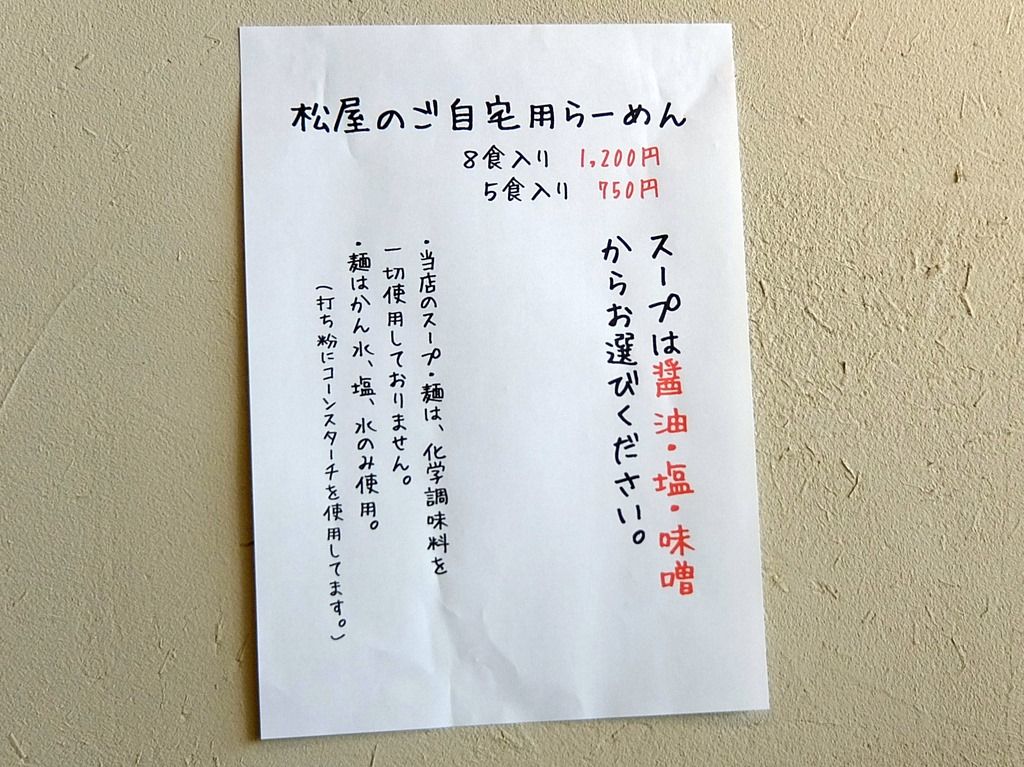 松屋のご自宅用らーめん
8食入り 1,200円
5食入り 750円
スープは醤油・塩・味噌
からお選びください。
・当店のスープ・麺は、化学調味料を
一切使用しておりません。
・麺はかん水、塩、水のみ使用。
(打ち粉にコーンスターチを使用してます。)